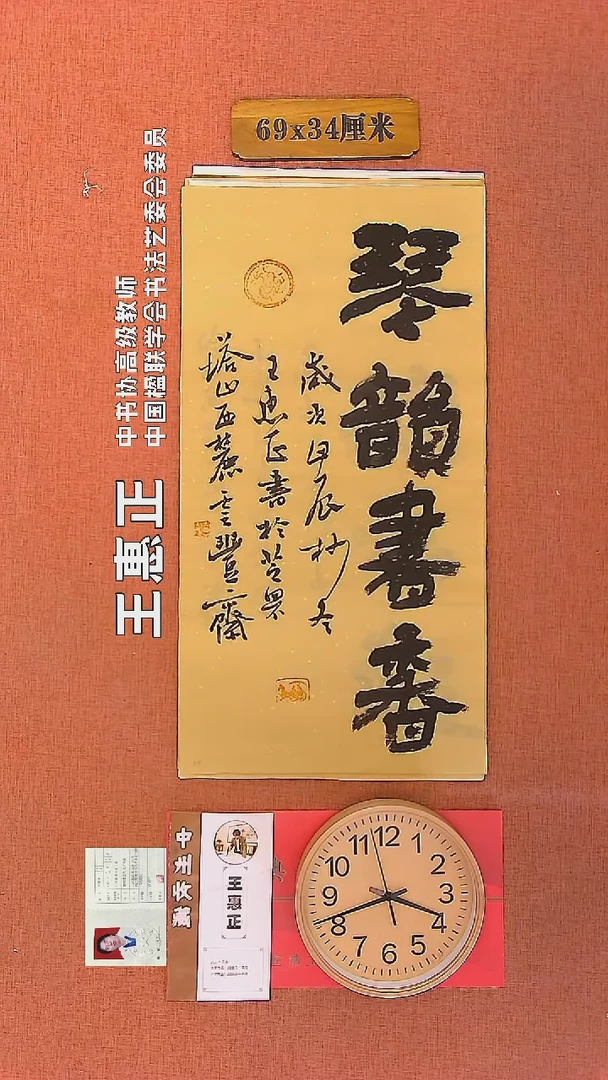 69x34厘米
琴韻書香
歲次甲辰杪冬
王惠正書於芝罘
塔山西麓雲豐齋
中书协高级教师
中国楹联学会书法艺委会委员
王惠正
中州收藏
王惠正
12
1
2
3
4
5
6
7
8
9
10
11